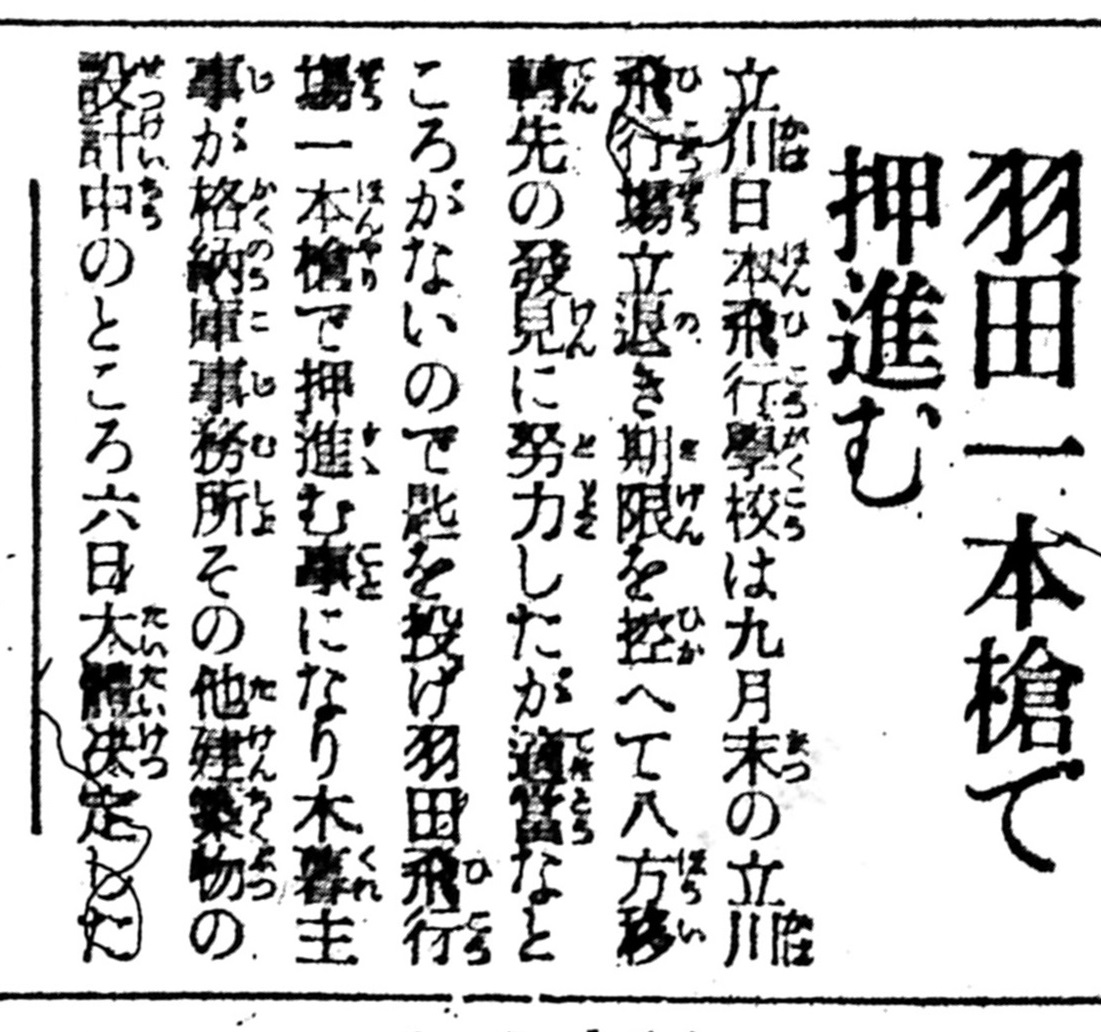 羽田一本槍で
押進む
立川日本飛行學校は九月末の立川
飛行場立退き期限を控へて八方移
轉先の發見に努力したが適當なと
ころがないので匙を投げ羽田飛行
場一本槍で押進む事になり木暮主
事が格納庫事務所その他建築物の
設計中のところ六日大體決定した